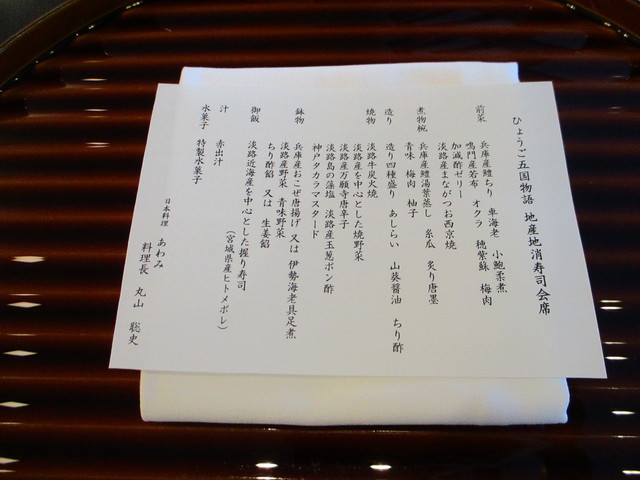 ひょうご五国物語 地産地消寿司会席
前菜 兵庫産鱧ちり 車海老 小鮑柔煮
鳴門産若布 オクラ 穂紫蘇 梅肉
加減酢ゼリー
淡路産まながつお西京焼
煮物椀 兵庫産鱧湯葉蒸し 糸瓜 炙り唐墨
青味 梅肉 柚子
造り 造り四種盛り あしらい 山葵醤油 ちり酢
焼物 淡路牛炭火焼
淡路産を中心とした焼野菜
淡路産万願寺唐辛子
淡路島の藻塩 淡路産玉葱ポン酢
神戸タカラマスタード
鉢物 兵庫産おこぜ唐揚げ 又は 伊勢海老具足煮
淡路産野菜 青味野菜
ちり酢餡 又は 生姜餡
御飯 淡路近海産を中心とした握り寿司
(宮城県産ヒトメボレ)
汁 赤出汁
水菓子 特製水菓子
日本料理 あわみ
料理長 丸山 聡史